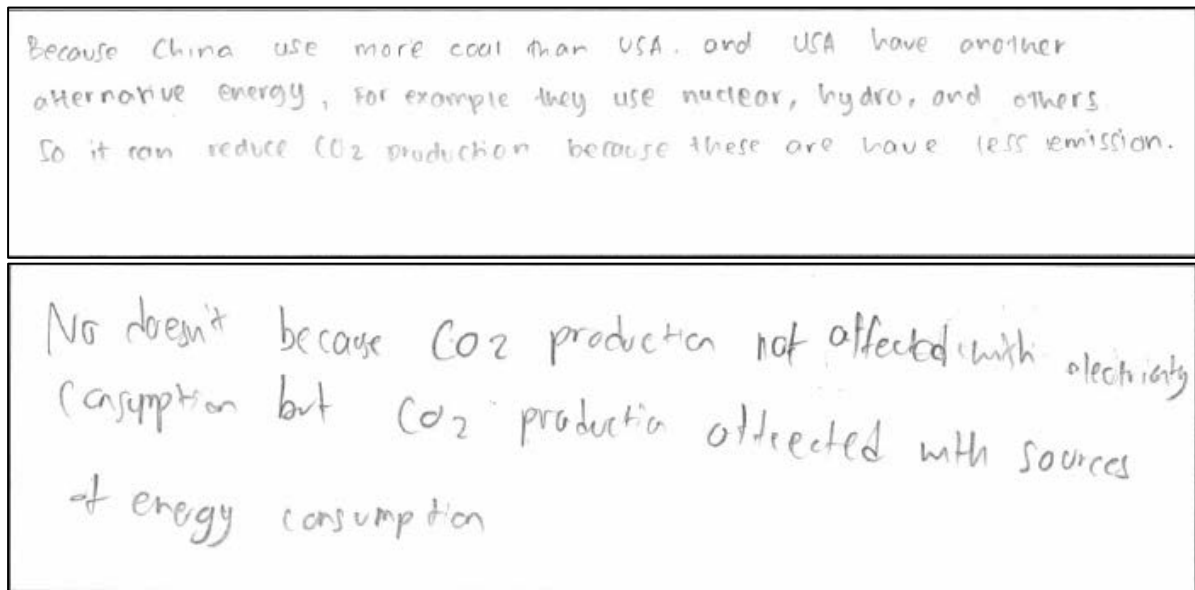 Because China use more coal than USA. and USA have another
alternative energy, For example they use nuclear, hydro, and others.
So it can reduce CO2 production because these are have less emission.
No doesn't because CO2 production not affected with electricity
Consumption but CO2 production affected with sources
of energy consumption